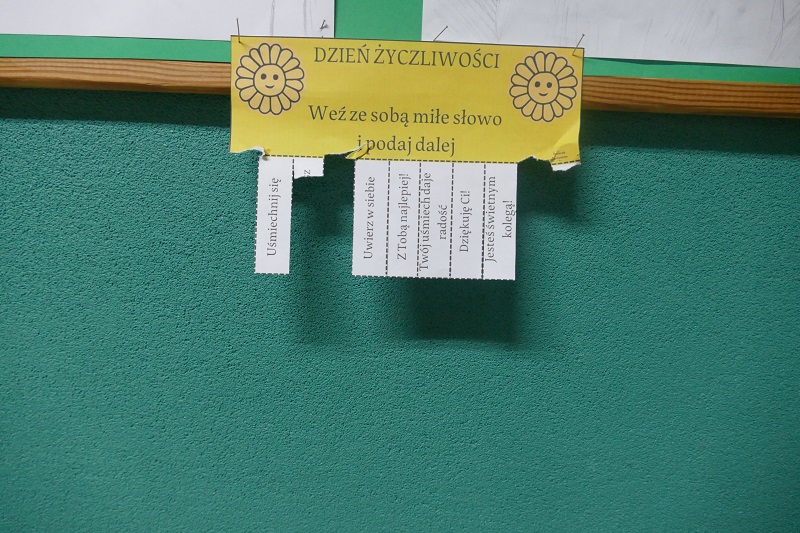 DZIEŃ ŻYCZLIWOŚCI
Weź ze sobą miłe słowo
i podaj dalej
Uśmiechnij się
Uwierz w siebie
Z Tobą najlepiej!
Twój uśmiech daje
radość
Dziękuję Ci!
Jesteś świetnym
kolegą!